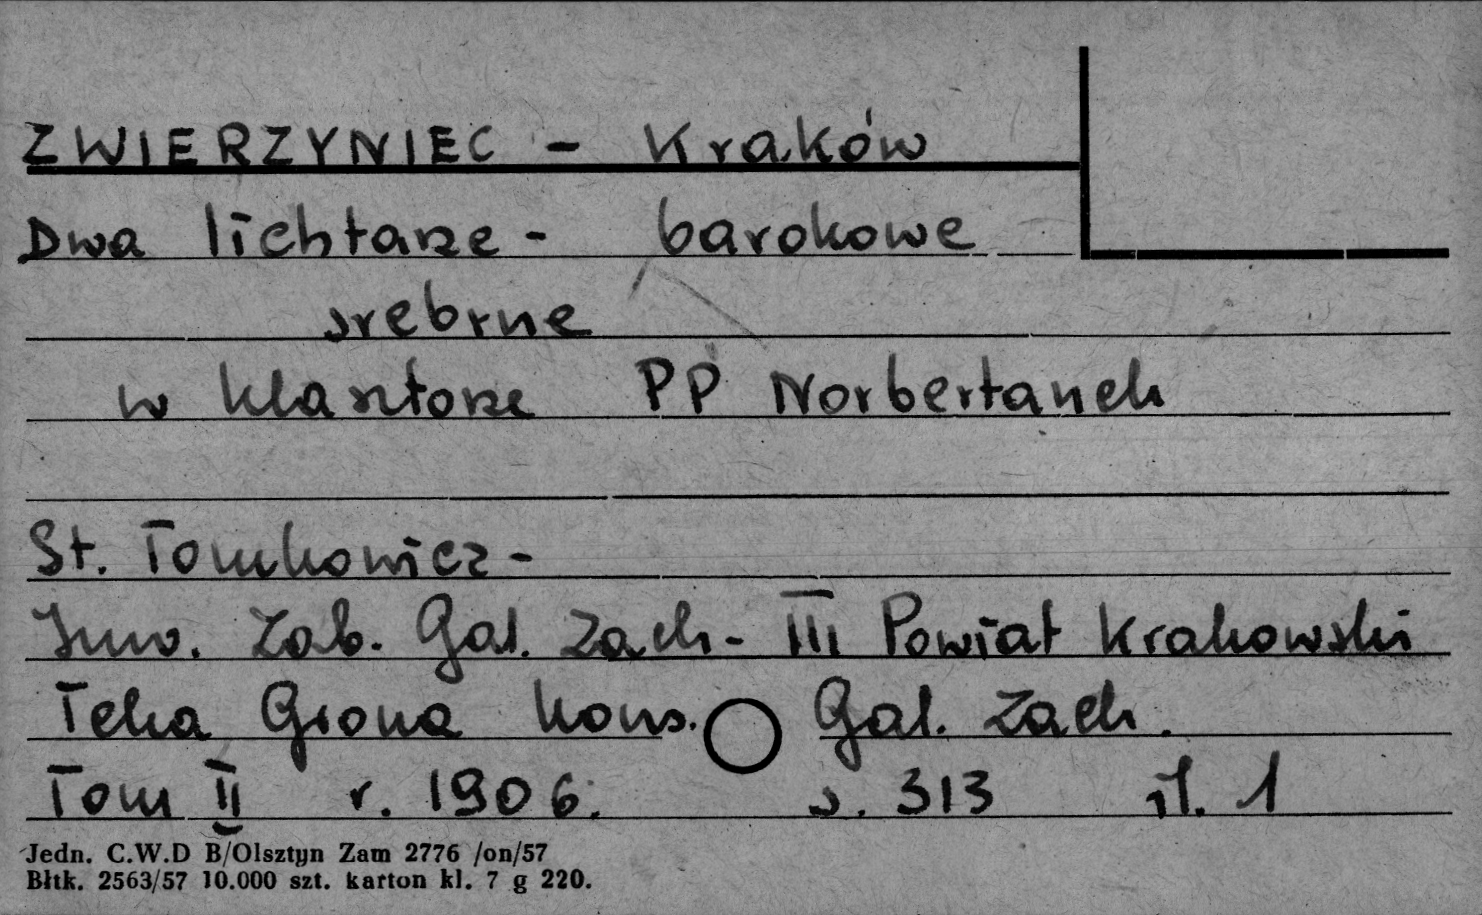 ZWIERZYNIEC - Kraków
Dwa lichtarze - barokowe
srebrne
w klasztorze PP Norbertanek
St. Tomkowicz -
Inw. Zab. Gal. Zach - III Powiat Krakowski
Teka Grona Kons. Gal. Zach.
Tom II r. 1906. s. 313 il. 1
Jedn. C.W.D B/Olsztyn Zam 2776 /on/57
Błtk. 2563/57 10.000 szt. karton kl. 7 g 220.